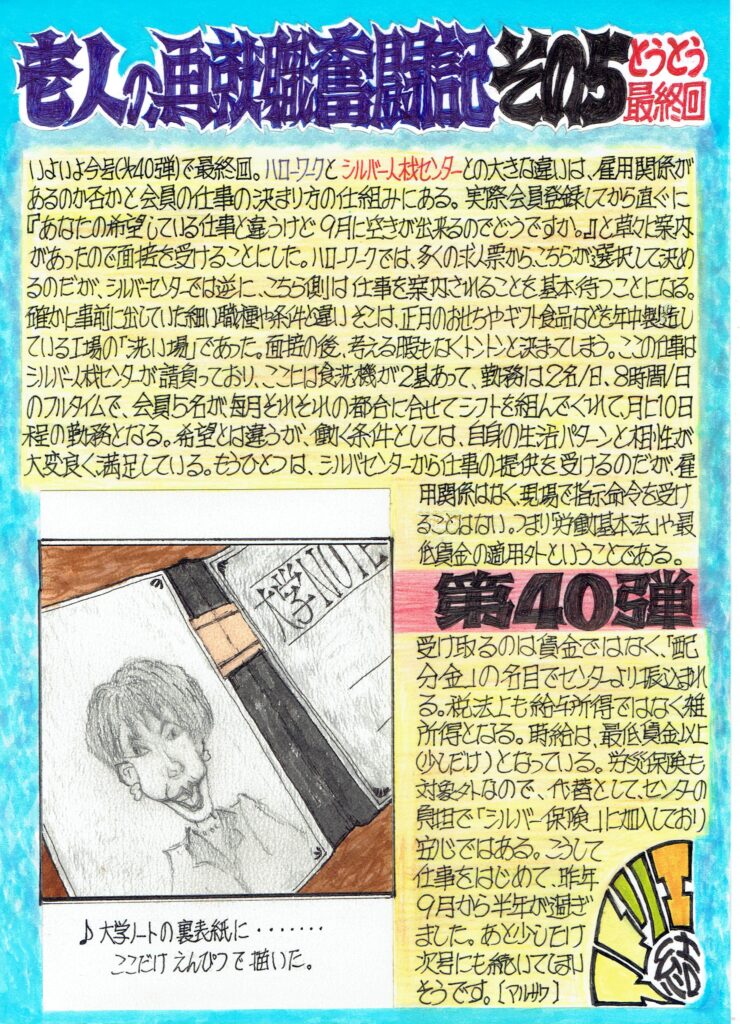 老人の再就職奮闘記その5
とうとう
最終回
いよいよ今号(才40弾)で最終回。ハローワークとシルバー人材センターとの大きな違いは、雇用関係が
あるのか否かと会員の仕事の決まり方の仕組みにある。実際会員登録してから直ぐに
『あなたの希望している仕事と違うけど9月に空きが出来るのでどうですか。』と早々に案内
があったので面接を受けることにした。ハローワークでは、多くの求人票から、こちらが選択して決め
るのだが、シルバーセンターでは逆に、こちら側は仕事を案内されることを基本待つことになる。
確かに事前に出していた細い職種や条件と違いそこは、正月のおせちやギフト食品などを年中製造し
ている工場の「洗い場」であった。面接の後、考える暇もなくトントンと決まってしまう。ここの仕事は
シルバー人材センターが請負っており、ここには食洗機が2基あって、勤務は2名/日、8時間/日
のフルタイムで、会員5名が毎月それぞれの都合に合せてシフトを組んでくれて、月に10日
程の勤務となる。希望とは違うが、働く条件としては、自身の生活パターンと相性が
大変良く満足している。もうひとつは、シルバセンターから仕事の提供を受けるのだが、雇
用関係はなく、現場で指示命令を受け
ることはない。つまり「労働基本法」や最
低賃金の適用外ということである。
第40弾
受け取るのは賃金ではなく、「配
分金」の名目でセンターより振込まれ
る。税法上も給与所得ではなく雑
所得となる。時給は、最低賃金以上
(少しだけ)となっている。労災保険も
対象外なので、代替として、センターの
負担で「シルバー保険」に加入しており
安心ではある。こうして
仕事をはじめて、昨年
9月から半年が過ぎ
ました。あと少しだけ
次号にも続いてしまい
そうです。[アルサウ]
大学NOTE
♪大学ノートの裏表紙に・・・・・・・
ここだけえんぴつで描いた。